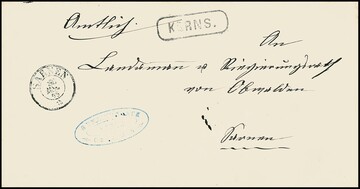 Amtlich.
KERNS.
An
Landaman u Regierungsrath
von Obwalden
SARNEN
Sarnen